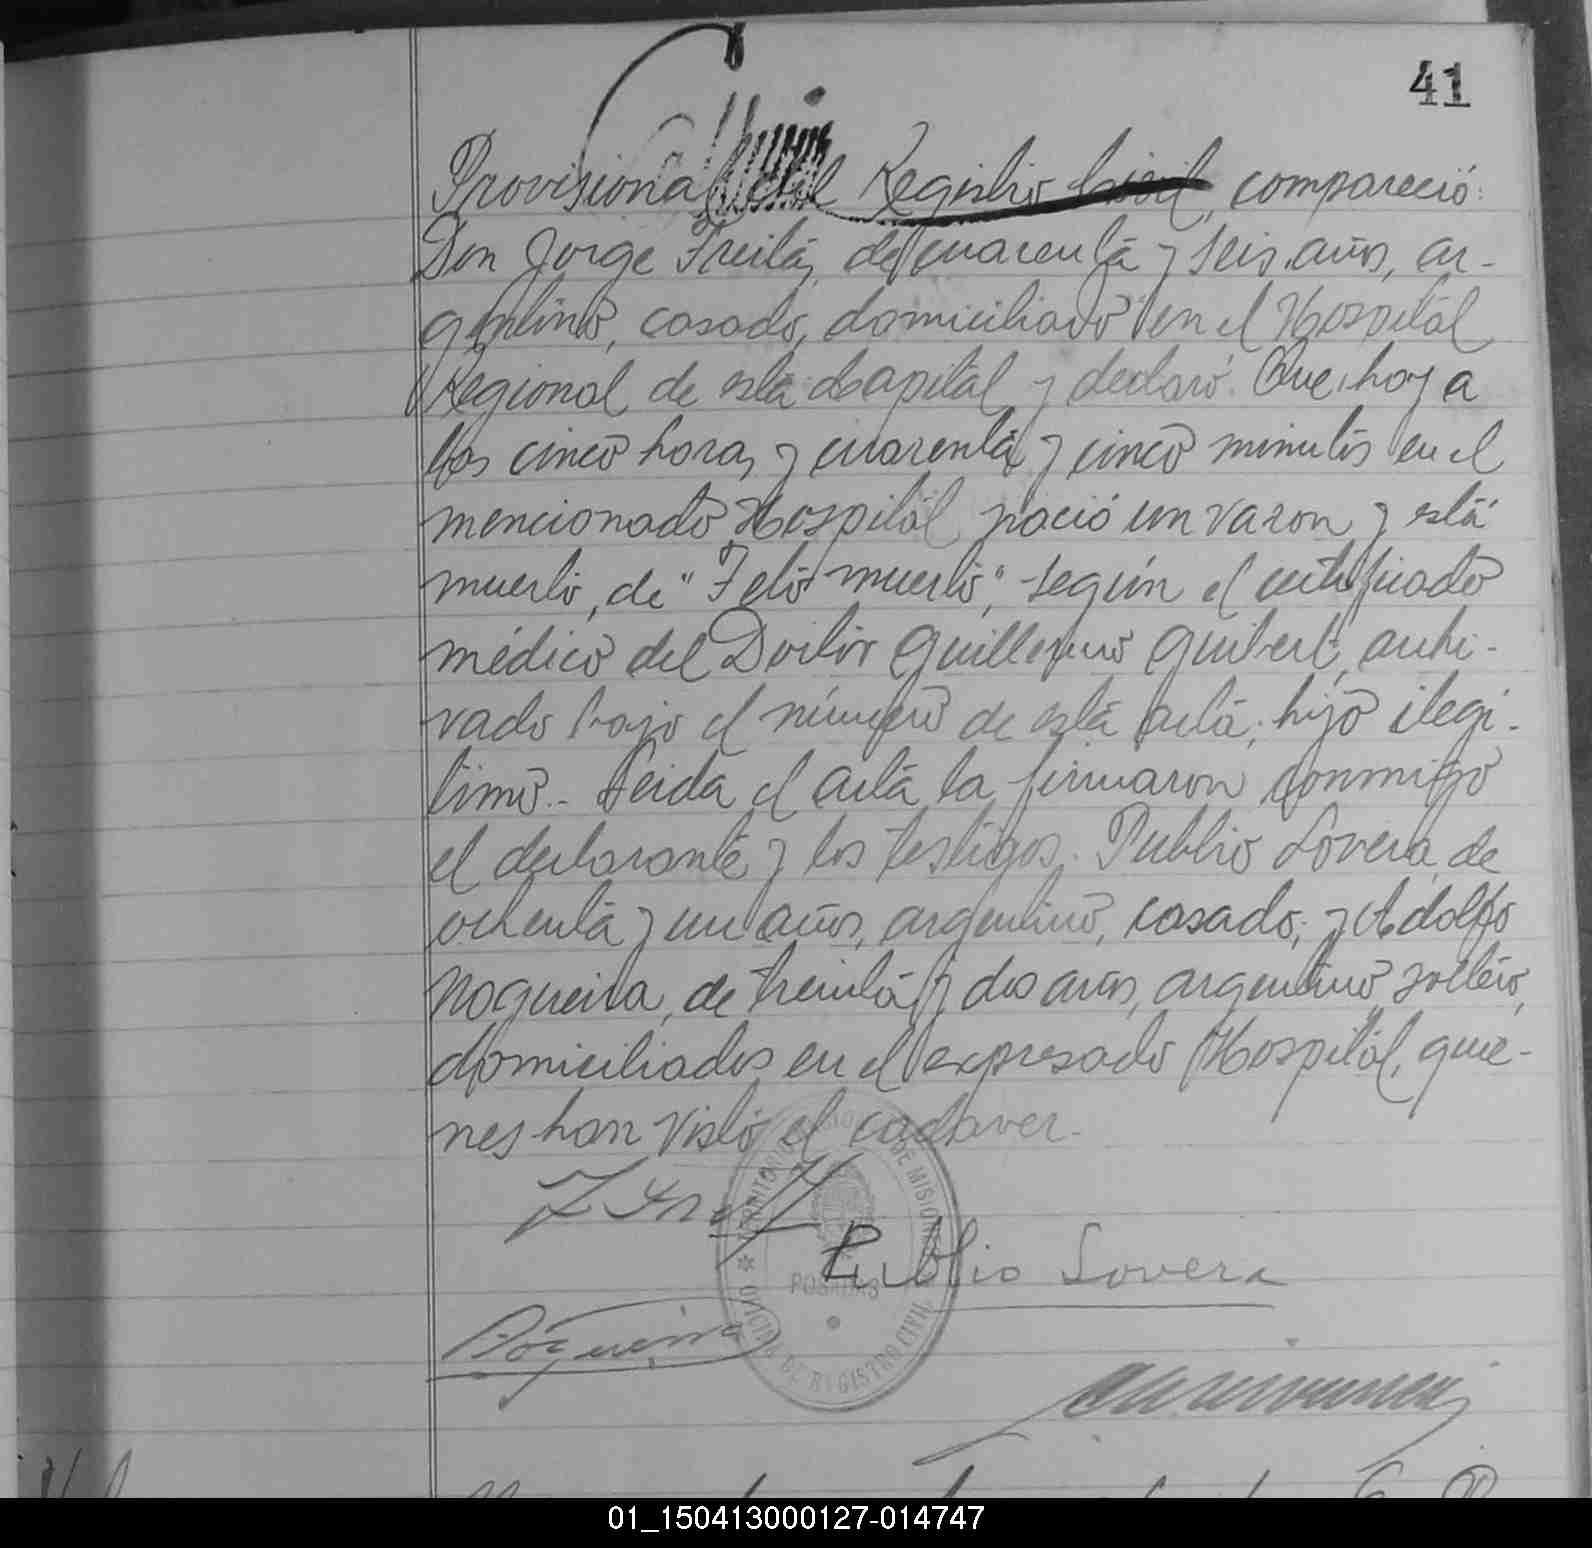 41
Provisional del Registro Civil, compareció:
Don Jorge Freita, de cuarenta y seis años, ar-
gentino, casado, domiciliado en el Hospital
Regional de esta Capital y declaró: Que, hoy a
las cinco horas y cuarenta y cinco minutos en el
mencionado Hospital nació un varon y está
muerto, de "Feto muerto", según el certificado
médico del Doctor Guillermo Guibert, archi-
vado bajo el número de esta acta; hijo ilegi-
timo.- Leida el acta la firmaron conmigo
el declarante y los testigos: Publio Lovera, de
ochenta y un años, argentino, casado; y Adolfo
Nogueira, de treinta y dos años, argentino soltero,
domiciliados en el expresado Hospital, quie-
nes han visto el cadaver.-
TERRITORIO DE MISIONES
Publio Lovera
POSADAS
Nogueira
OFICINA DE REGISTRO CIVIL
01_150413000127-014747